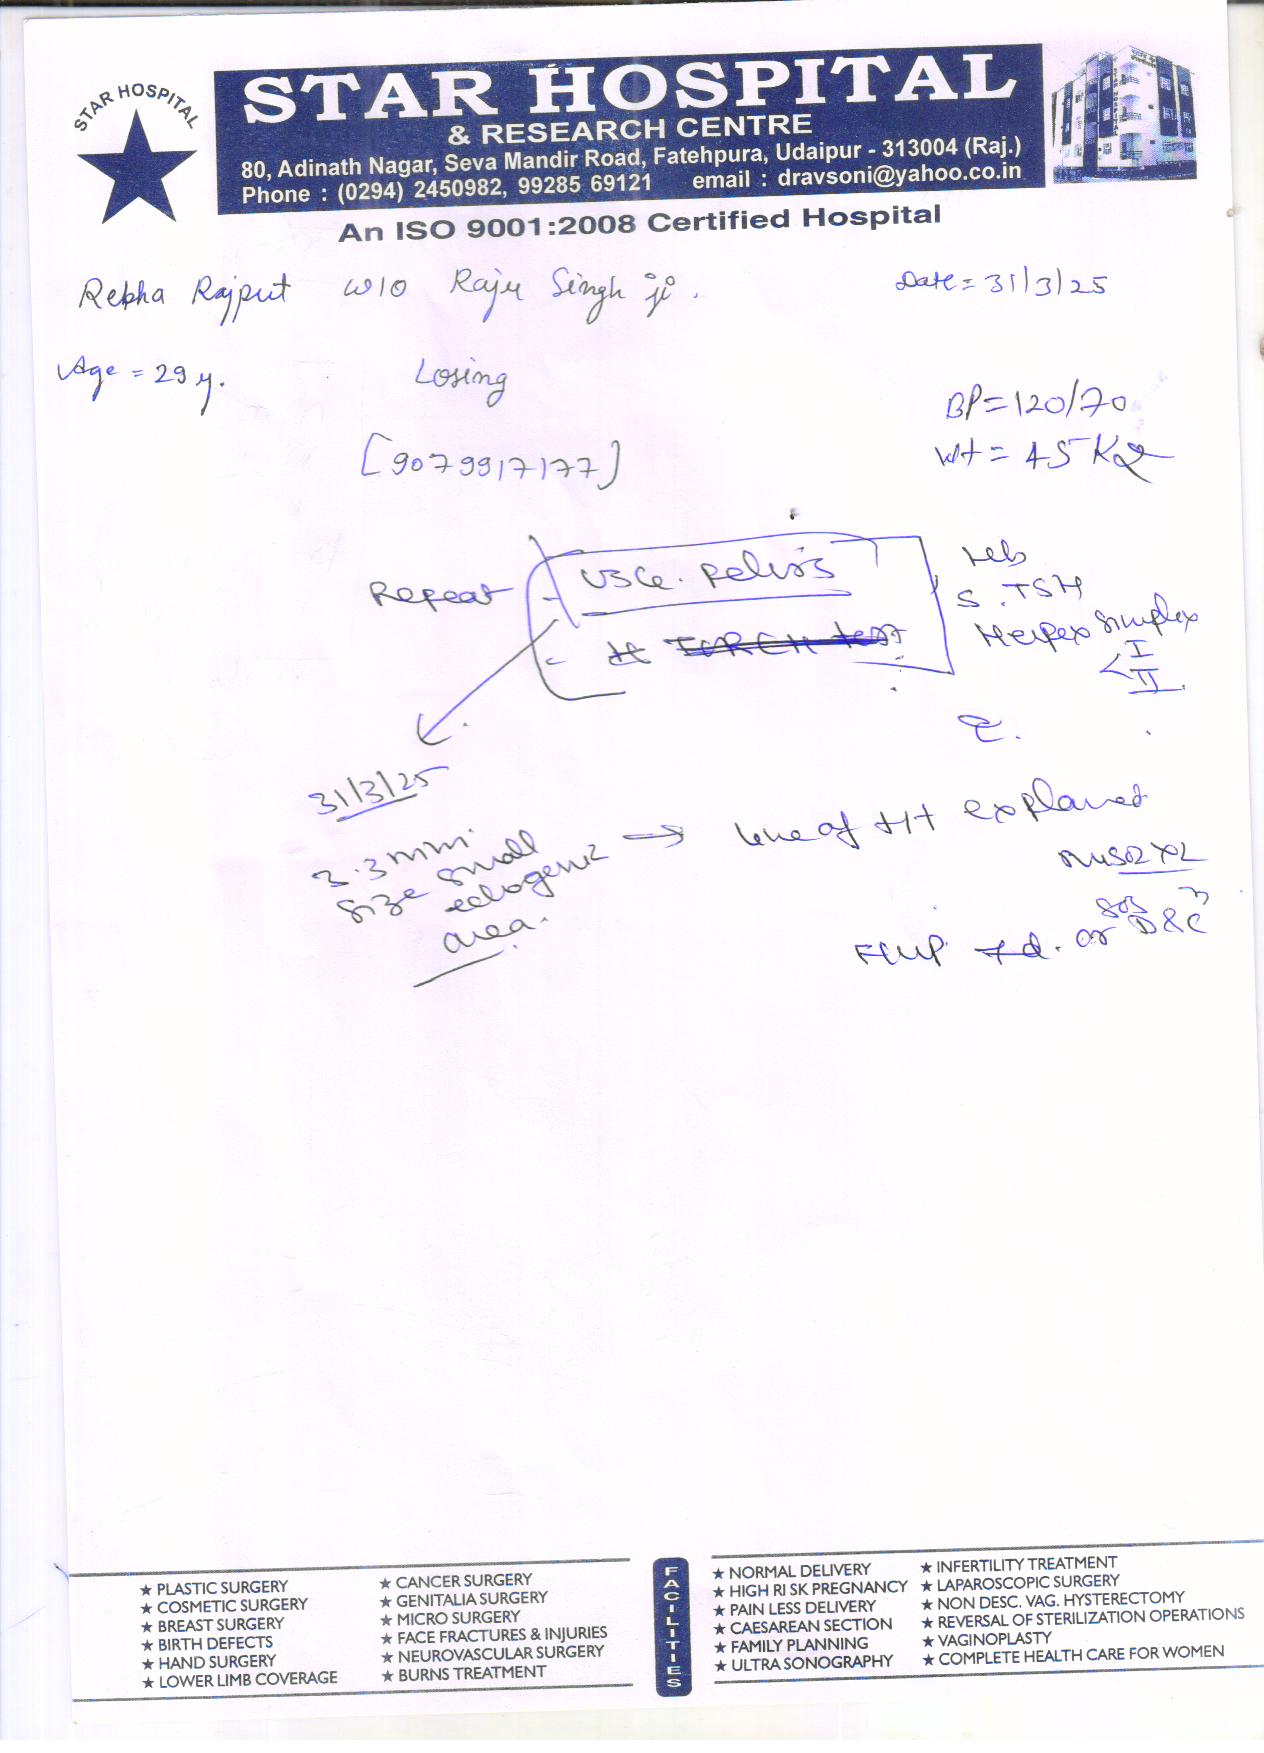 STAR HOSPITAL
STAR HOSPITAL
& RESEARCH CENTRE
80, Adinath Nagar, Seva Mandir Road, Fatehpura, Udaipur - 313004 (Raj.)
Phone : (0294) 2450982, 99285 69121 email : dravsoni@yahoo.co.in
An ISO 9001:2008 Certified Hospital
Rekha Rajput W/O Raju Singh ji.
Date = 31/3/25
Age = 29 y.
Losing
BP = 120/70
[9079917177]
Wt = 45 Kg
Repeat
USG. Pelvis
TORCH test
Hb
S. TSH
Herpex simplex
I
II
31/3/25
3.3mm
size small
echogenic
area.
→ line of t/t explained
sos
FUP 7d. or D&C
FACILITIES
★ PLASTIC SURGERY
★ COSMETIC SURGERY
★ BREAST SURGERY
★ BIRTH DEFECTS
★ HAND SURGERY
★ LOWER LIMB COVERAGE
★ CANCER SURGERY
★ GENITALIA SURGERY
★ MICRO SURGERY
★ FACE FRACTURES & INJURIES
★ NEUROVASCULAR SURGERY
★ BURNS TREATMENT
★ NORMAL DELIVERY
★ HIGH RI SK PREGNANCY
★ PAIN LESS DELIVERY
★ CAESAREAN SECTION
★ FAMILY PLANNING
★ ULTRA SONOGRAPHY
★ INFERTILITY TREATMENT
★ LAPAROSCOPIC SURGERY
★ NON DESC. VAG. HYSTERECTOMY
★ REVERSAL OF STERILIZATION OPERATIONS
★ VAGINOPLASTY
★ COMPLETE HEALTH CARE FOR WOMEN